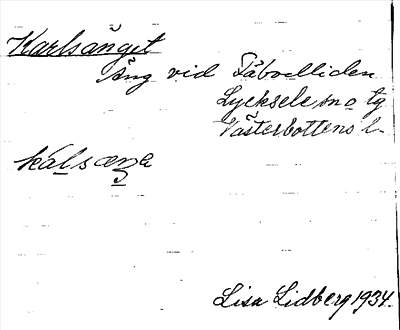 Karlsänget
Äng vid Fäboelliden
Lycksele sn o tg
Västerbottens l.
kálsæŋa
Lisa Lidberg 1934.